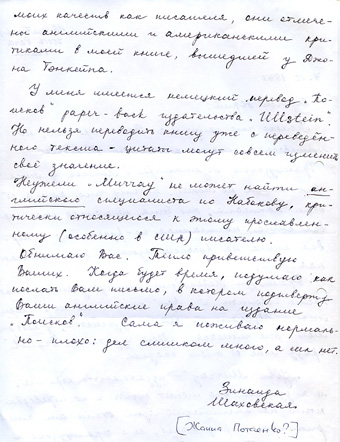 моих качеств как писателя, они отмече-
ны английскими и американскими кри-
тиками в моей книге, вышедшей у Джо-
на Гонкетна.
У меня имеется немецкий перевод „По-
исков" paper-back издательства „Ullstein".
Но нельзя переводить книгу уже с переведён-
ного текста – цитаты могут совсем изменить
своё значение.
Неужели „Миччау" не может найти ан-
глийского специалиста по Набокову, кри-
тически относящегося к этому прославлен-
ному (особенно в США) писателю.
Обнимаю Вас. Тепло приветствую
Ваших. Когда будет время, подумаю как
послать Вам письмо, в котором подтвержу
Вам английские права на издание
„Поисков". Сама я поживаю нормаль-
но-плохо: дел слишком много, а сил нет.
Зинаида
Шаховская.
[Жанна ?]